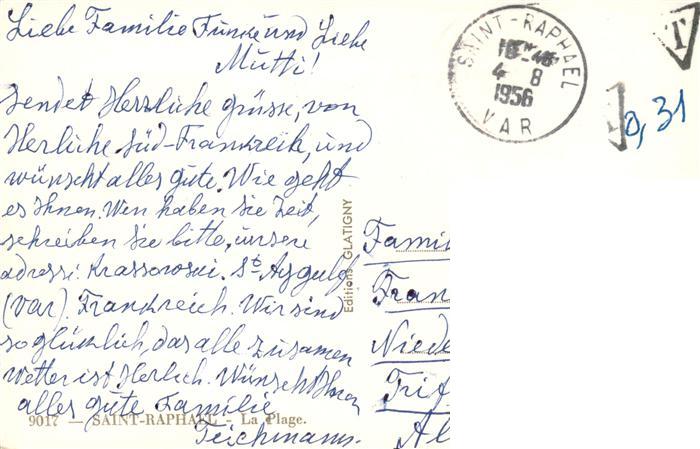 Liebe Familie Funke und Liebe
Mutti!
Sendet Herzliche grüsse, von
Herliche Süd-Frankreik, und
wünscht alles gute. Wie geht
es Ihnen. Wen haben Sie Zeit,
schreiben Sie bitte, unsere
adresse: St Aygulf
(Var). Frankreich. Wir sind
so glücklich, das alle zusamen
Wetter ist Herlich. Wünscht Ihnen
alles gute Familie
Teichmann.
9017 — SAINT-RAPHAEL - La Plage.
Editions GLATIGNY
SAINT-RAPHAEL
4 8
1956
VAR
T
0,31
Famil
Fran
Niede
Trif
Al